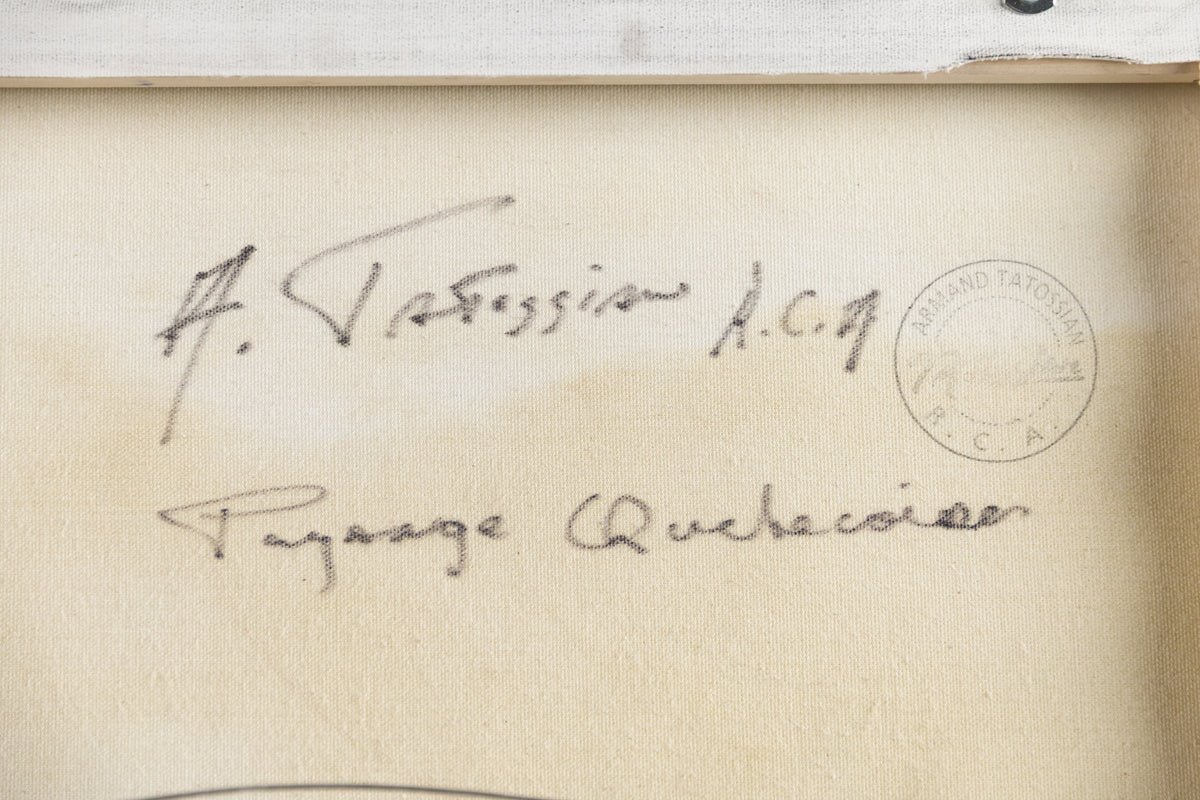 A. Tatossian R.C.A
ARMAND TATOSSIAN
R. C. A.
Paysage Quebecois